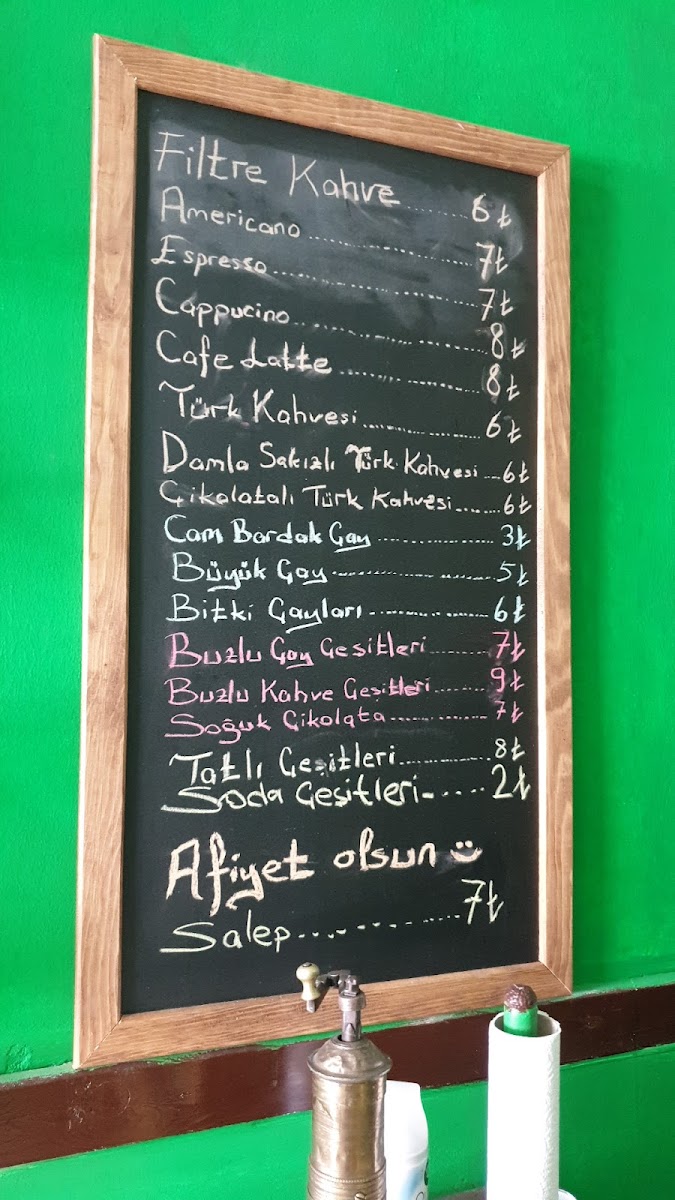 Filtre Kahve ........ 6 ₺
Americano ........ 7 ₺
Espresso ........ 7 ₺
Cappucino ........ 8 ₺
Cafe Latte ........ 8 ₺
Türk Kahvesi ........ 6 ₺
Damla Sakızlı Türk Kahvesi ... 6 ₺
Çikolatalı Türk Kahvesi .... 6 ₺
Cam Bardak Çay ........ 3 ₺
Büyük Çay ........ 5 ₺
Bitki Çayları ........ 6 ₺
Buzlu Çay Çeşitleri ........ 7 ₺
Buzlu Kahve Çeşitleri ........ 9 ₺
Soğuk Çikolata ........ 7 ₺
Tatlı Çeşitleri ........ 8 ₺
Soda Çeşitleri ..... 2 ₺
Afiyet olsun
Salep ........ 7 ₺